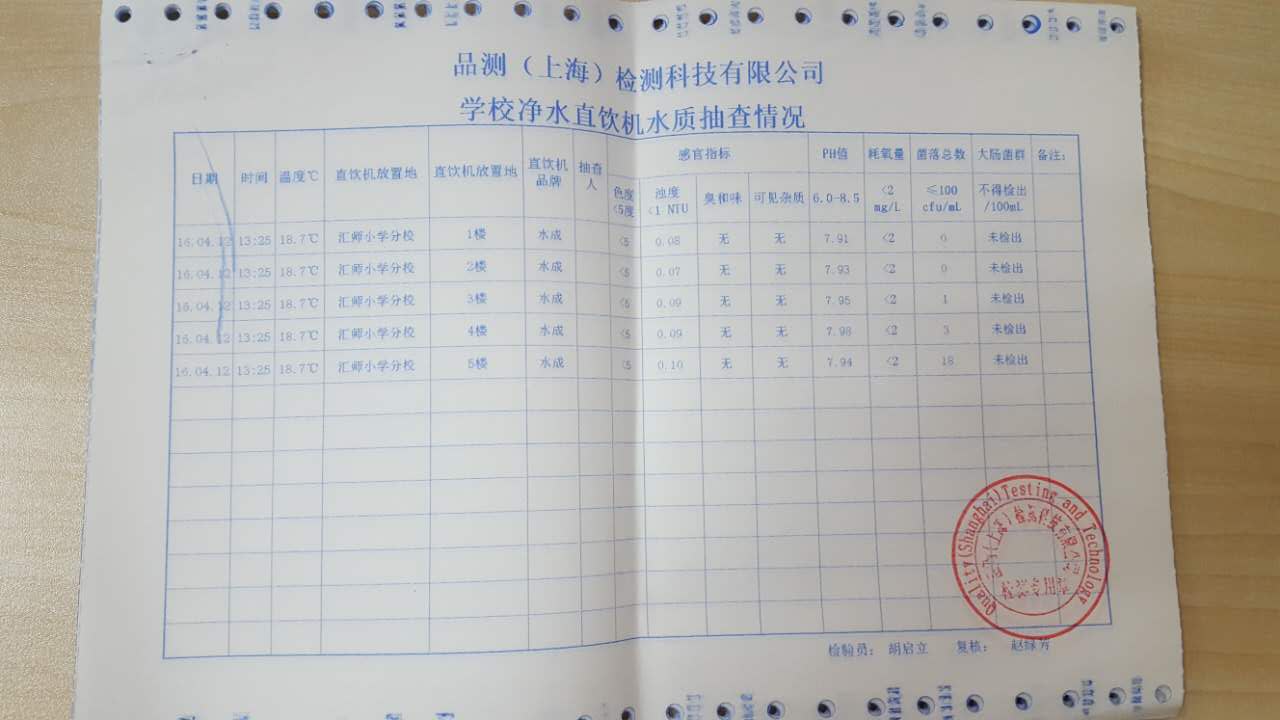 品测（上海）检测科技有限公司
学校净水直饮机水质抽查情况
日期 时间 温度℃ 直饮机放置地 直饮机放置地 直饮机品牌 抽查人 感官指标 PH值 耗氧量 菌落总数 大肠菌群 备注：
色度<5度 浊度<1 NTU 臭和味 可见杂质 6.0-8.5 <2 mg/L ≤100 cfu/mL 不得检出/100mL
16.04.12 13:25 18.7℃ 汇师小学分校 1楼 水成 <5 0.08 无 无 7.91 <2 0 未检出
16.04.12 13:25 18.7℃ 汇师小学分校 2楼 水成 <5 0.07 无 无 7.93 <2 0 未检出
16.04.12 13:25 18.7℃ 汇师小学分校 3楼 水成 <5 0.09 无 无 7.95 <2 1 未检出
16.04.12 13:25 18.7℃ 汇师小学分校 4楼 水成 <5 0.09 无 无 7.98 <2 3 未检出
16.04.12 13:25 18.7℃ 汇师小学分校 5楼 水成 <5 0.10 无 无 7.94 <2 18 未检出
Quality(Shanghai)Testing and Technology
检验员： 胡启立 复核： 赵绿芳